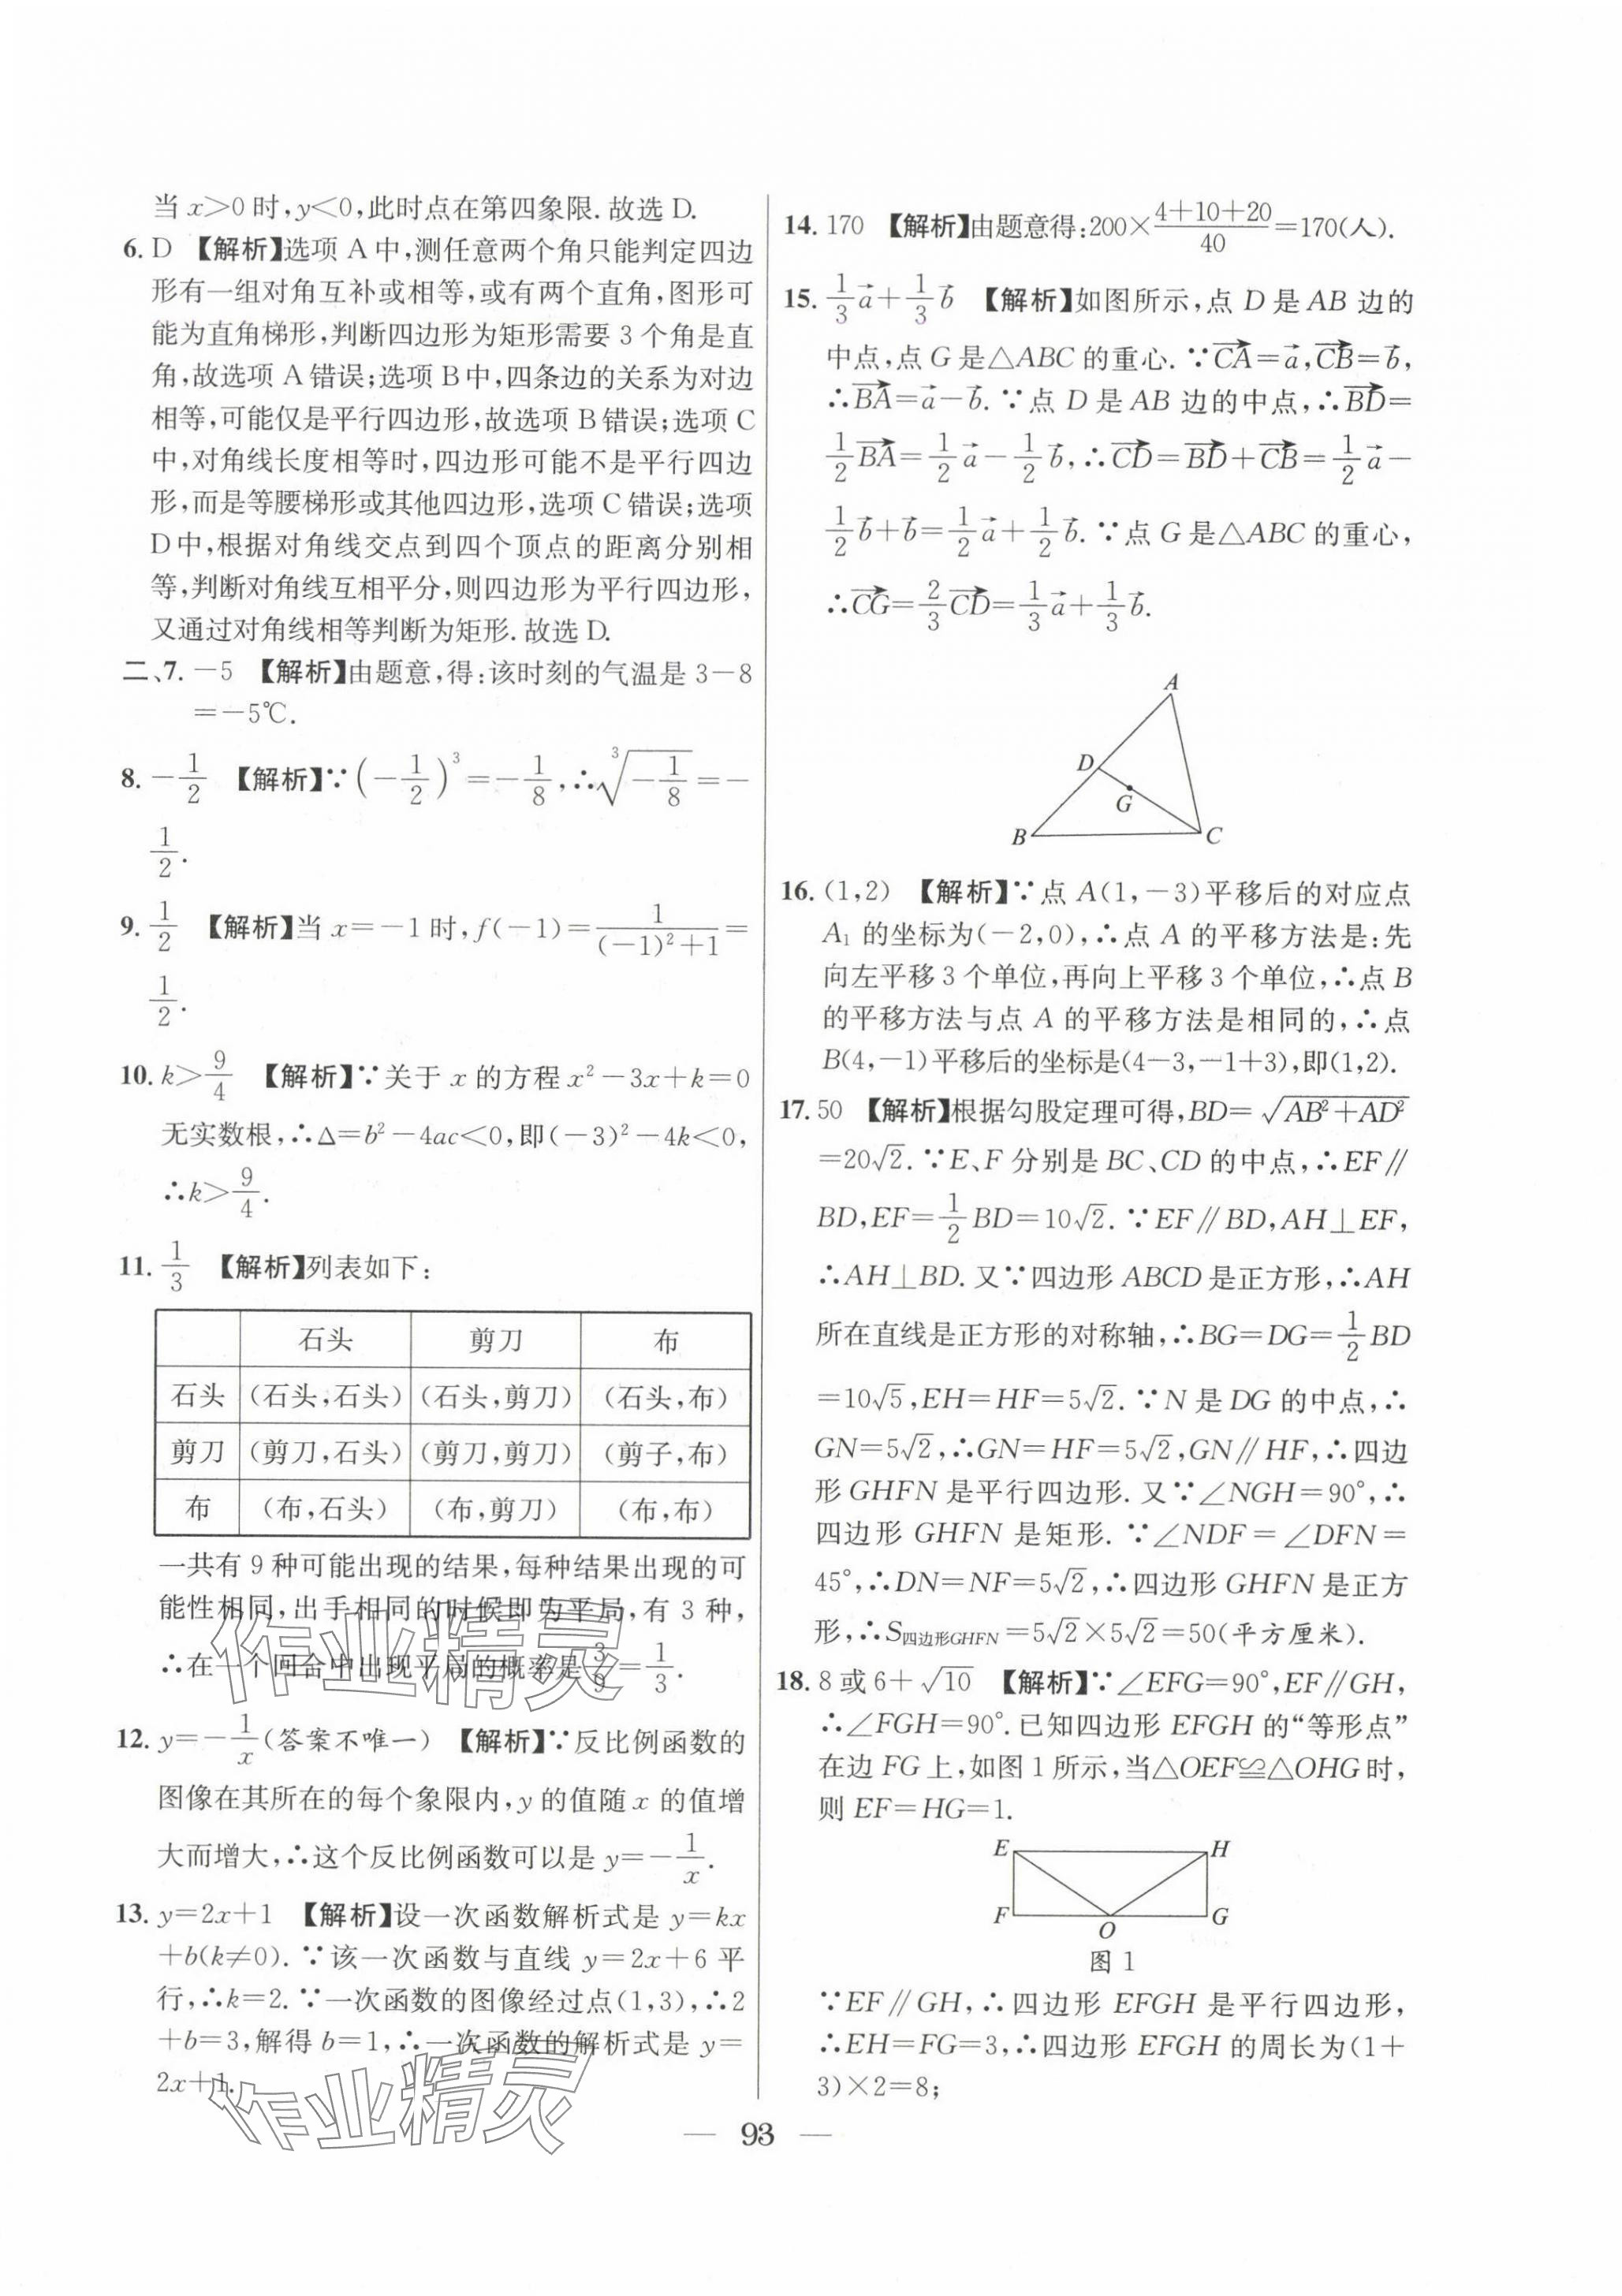 当 x>0 时,y<0,此时点在第四象限.故选 D.
6. D 【解析】选项 A 中,测任意两个角只能判定四边
形有一组对角互补或相等,或有两个直角,图形可
能为直角梯形,判断四边形为矩形需要 3 个角是直
角,故选项 A 错误;选项 B 中,四条边的关系为对边
相等,可能仅是平行四边形,故选项 B 错误;选项 C
中,对角线长度相等时,四边形可能不是平行四边
形,而是等腰梯形或其他四边形,选项 C 错误;选项
D 中,根据对角线交点到四个顶点的距离分别相
等,判断对角线互相平分,则四边形为平行四边形,
又通过对角线相等判断为矩形.故选 D.
二、7. −5 【解析】由题意,得:该时刻的气温是 3−8
=−5℃.
8. −1/2 【解析】∵(−1/2)³=−1/8,∴∛(−1/8)=−
1/2.
9. 1/2 【解析】当 x=−1 时,f(−1)=1/((−1)²+1)=
1/2.
10. k>9/4 【解析】∵关于 x 的方程 x²−3x+k=0
无实数根,∴Δ=b²−4ac<0,即(−3)²−4k<0,
∴k>9/4.
11. 1/3 【解析】列表如下:
石头 剪刀 布
石头 (石头,石头) (石头,剪刀) (石头,布)
剪刀 (剪刀,石头) (剪刀,剪刀) (剪子,布)
布 (布,石头) (布,剪刀) (布,布)
一共有 9 种可能出现的结果,每种结果出现的可
能性相同,出手相同的时候即为平局,有 3 种,
∴在一个回合中出现平局的概率是3/9=1/3.
12. y=−1/x(答案不唯一) 【解析】∵反比例函数的
图像在其所在的每个象限内,y 的值随 x 的值增
大而增大,∴这个反比例函数可以是 y=−1/x.
13. y=2x+1 【解析】设一次函数解析式是 y=kx
+b(k≠0).∵该一次函数与直线 y=2x+6 平
行,∴k=2.∵一次函数的图像经过点(1,3),∴2
+b=3,解得 b=1,∴一次函数的解析式是 y=
2x+1.
14. 170 【解析】由题意得:200×(4+10+20)/40=170(人).
15. 1/3 a⃗+1/3 b⃗ 【解析】如图所示,点 D 是 AB 边的
中点,点 G 是△ABC 的重心.∵CA⃗=a⃗,CB⃗=b⃗,
∴BA⃗=a⃗−b⃗.∵点 D 是 AB 边的中点,∴BD⃗=
1/2 BA⃗=1/2 a⃗−1/2 b⃗,∴CD⃗=BD⃗+CB⃗=1/2 a⃗−
1/2 b⃗+b⃗=1/2 a⃗+1/2 b⃗.∵点 G 是△ABC 的重心,
∴CG⃗=2/3 CD⃗=1/3 a⃗+1/3 b⃗.
A
D
G
B
C
16. (1,2) 【解析】∵点 A(1,−3)平移后的对应点
A₁ 的坐标为(−2,0),∴点 A 的平移方法是:先
向左平移 3 个单位,再向上平移 3 个单位,∴点 B
的平移方法与点 A 的平移方法是相同的,∴点
B(4,−1)平移后的坐标是(4−3,−1+3),即(1,2).
17. 50 【解析】根据勾股定理可得,BD=√(AB²+AD²)
=20√2.∵E、F 分别是 BC、CD 的中点,∴EF∥
BD,EF=1/2 BD=10√2.∵EF∥BD,AH⊥EF,
∴AH⊥BD.又∵四边形 ABCD 是正方形,∴AH
所在直线是正方形的对称轴,∴BG=DG=1/2 BD
=10√5,EH=HF=5√2.∵N 是 DG 的中点,∴
GN=5√2,∴GN=HF=5√2,GN∥HF,∴四边
形 GHFN 是平行四边形.又∵∠NGH=90°,∴
四边形 GHFN 是矩形.∵∠NDF=∠DFN=
45°,∴DN=NF=5√2,∴四边形 GHFN 是正方
形,∴S四边形GHFN=5√2×5√2=50(平方厘米).
18. 8 或 6+√10 【解析】∵∠EFG=90°,EF∥GH,
∴∠FGH=90°.已知四边形 EFGH 的“等形点”
在边 FG 上,如图 1 所示,当△OEF≌△OHG 时,
则 EF=HG=1.
E
H
F
O
G
图 1
∵EF∥GH,∴四边形 EFGH 是平行四边形,
∴EH=FG=3,∴四边形 EFGH 的周长为(1+
3)×2=8;
— 93 —
作业精灵
作业精灵